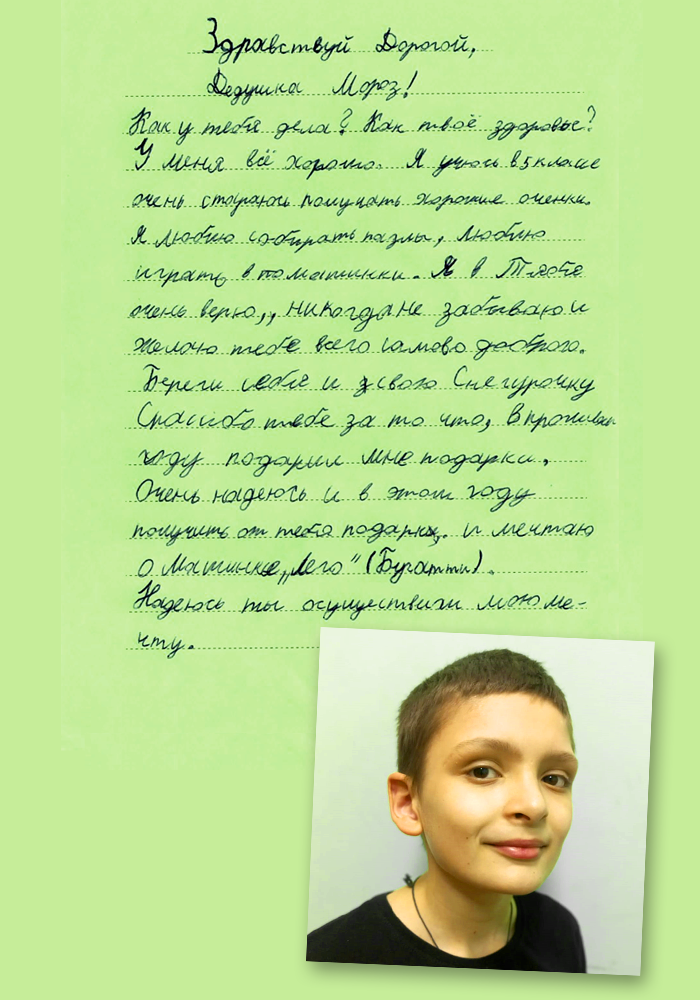 Здравствуй Дорогой,
Дедушка Мороз!
Как у тебя дела? Как твоё здоровье?
У меня всё хорошо. Я учюсь в 5 класе
очень стараюсь получать хорошие оценки.
Я люблю собирать пазлы, люблю
играть в томашинки. Я в Тебя
очень верю,, никогда не забываю и
желаю тебе всего самово доброго.
Береги себя и свою Снегурочку
Спасибо тебе за то что, в прошлом
году подарил мне подарки.
Очень надеюсь и в этом году
получить от тебя подарки,. и мечтаю
о Машинке „Лего" (Бугатти).
Надеюсь ты осуществиш мою ме-
чту.